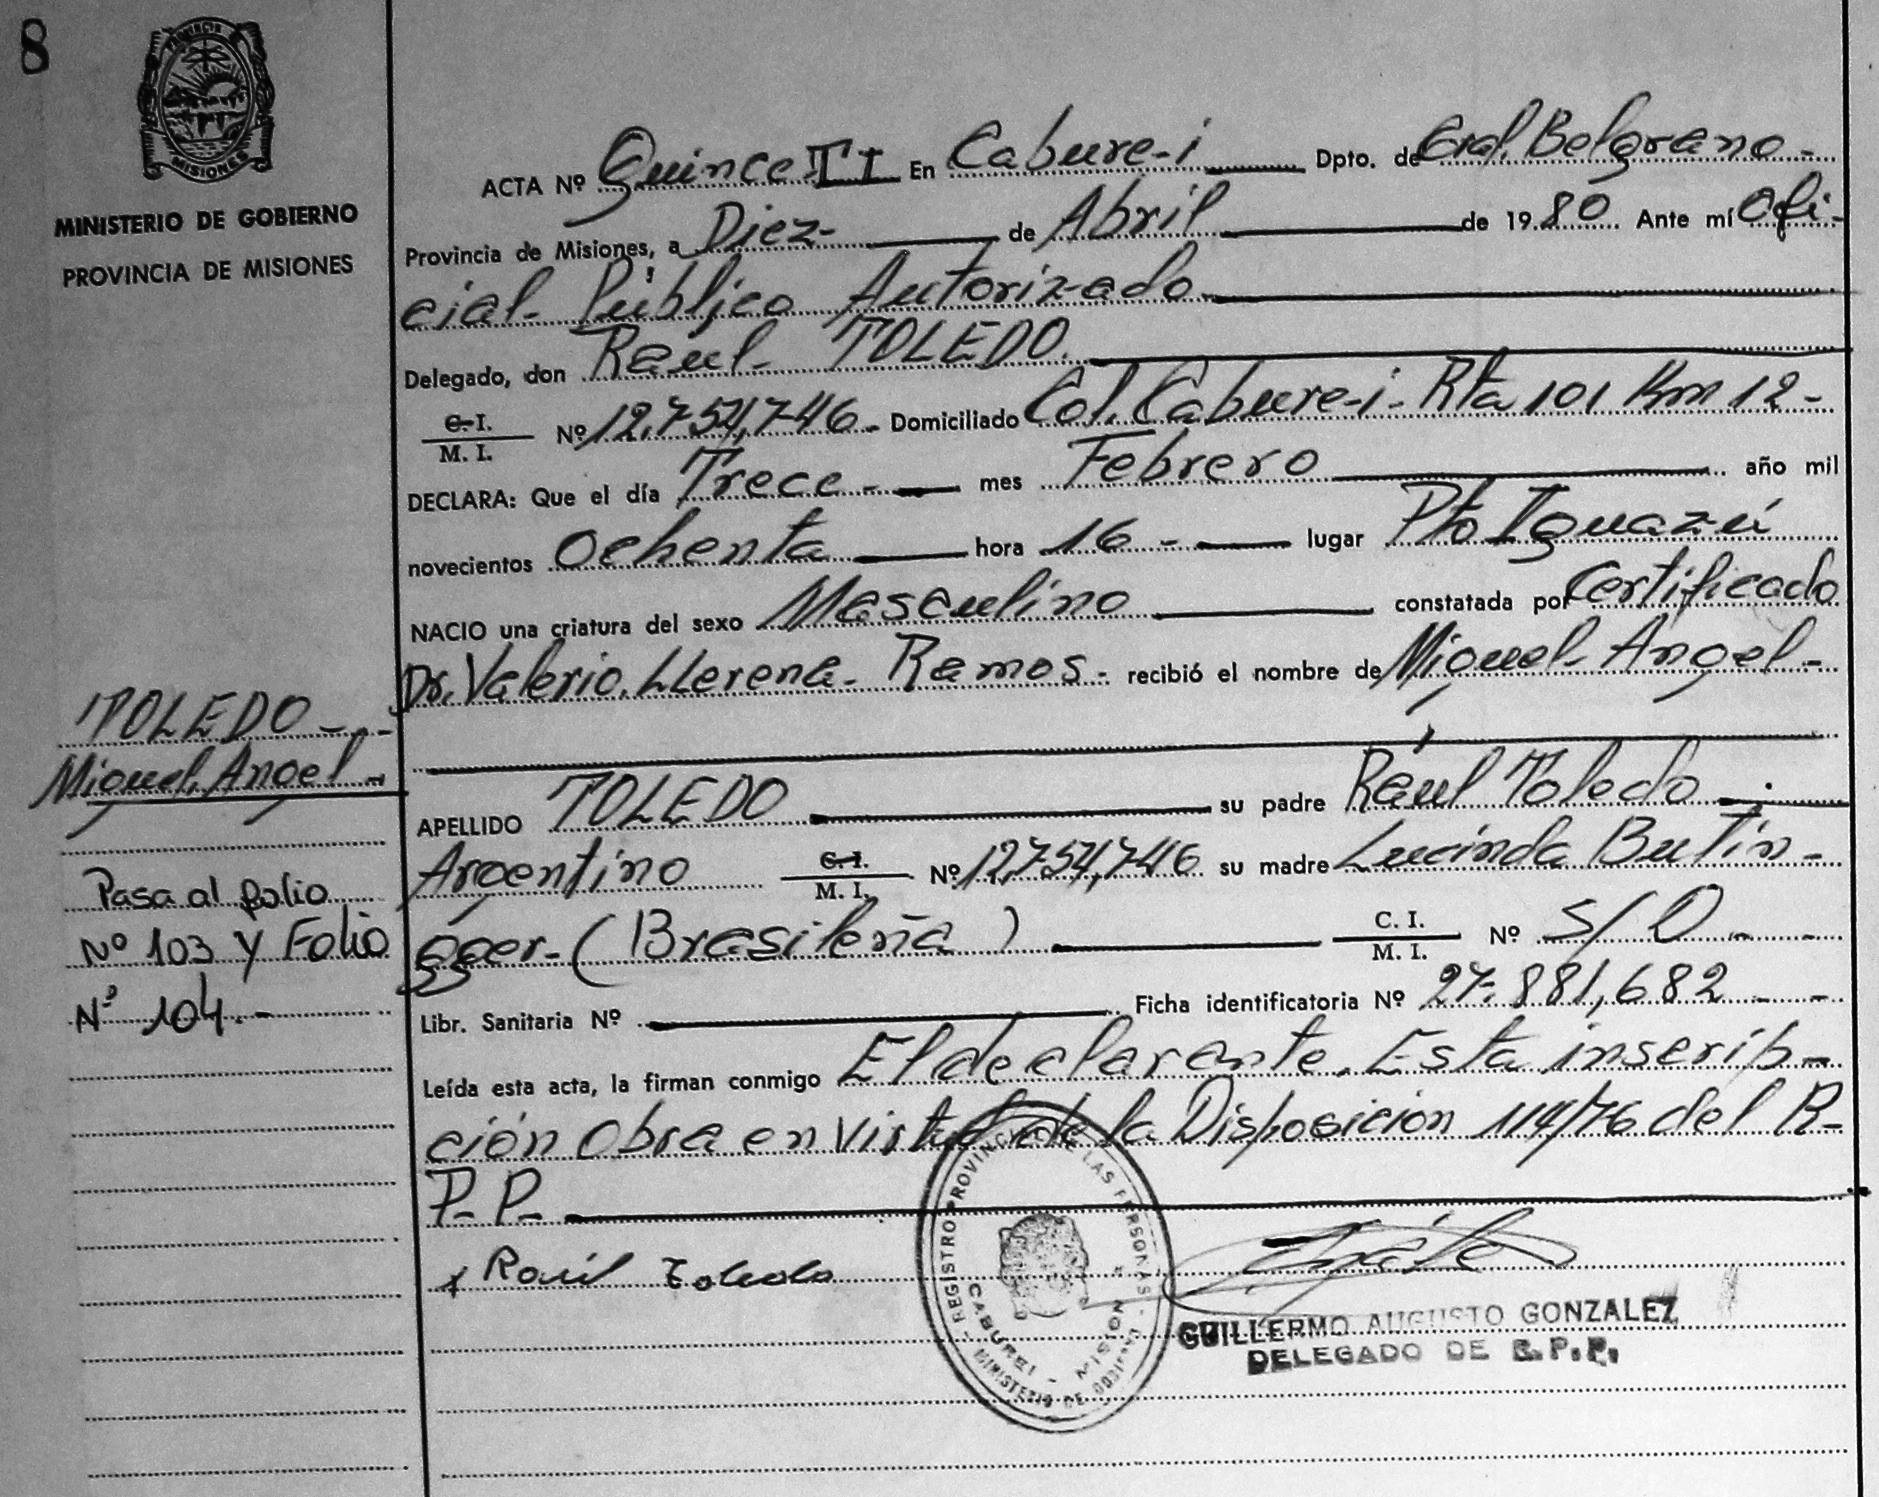 8
PROVINCIA D
MISIONES
MINISTERIO DE GOBIERNO
PROVINCIA DE MISIONES
ACTA Nº Quince TI En Cabure-i Dpto. de Gral. Belgrano -
Provincia de Misiones, a Diez - de Abril de 1980 Ante mí Ofi-
cial- Público Autorizado
Delegado, don Raul- TOLEDO.
C. I.
M. I. Nº 12.754,746 - Domiciliado Col. Cabure-i - Rta 101 Km 12 -
DECLARA: Que el día Trece - mes Febrero año mil
novecientos Ochenta hora 16 - lugar Pto Iguazú
NACIO una criatura del sexo Masculino constatada por Certificado
Dr. Valerio. Llerena - Ramos - recibió el nombre de Miguel- Angel -
TOLEDO - -
Miguel, Angel -
APELLIDO TOLEDO su padre Raúl Toledo
Argentino C. I.
M. I. Nº 12,754,746 su madre Lucinda Butin-
gger - (Brasileña) C. I.
M. I. Nº S/D - -
Pasa al folio
Nº 103 y Folio
Nº 104.-
Libr. Sanitaria Nº Ficha identificatoria Nº 27.881,682 - -
Leída esta acta, la firman conmigo El declarante. Esta inscrib-
ción Obra en Virtud de la Disposicion 114/76 del R-
P- P-
x Raúl Toledo
REGISTRO PROVINCIAL DE LAS PERSONAS
CABUREI - MISION
MINISTERIO DE GOBIERNO
GUILLERMO AUGUSTO GONZALEZ
DELEGADO DE R.P.P.